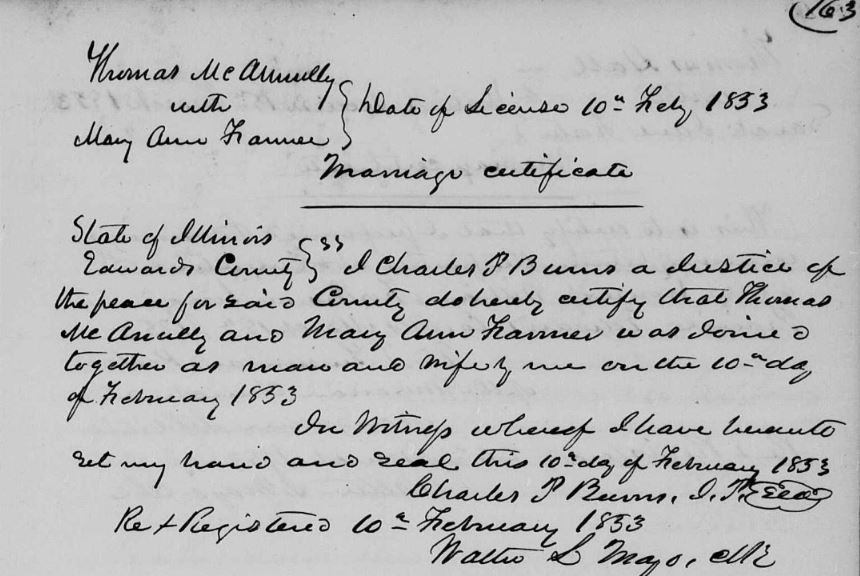 163
Thomas McAnnully
with } Date of License 10th Feby 1853
Mary Ann Farmer
Marriage certificate
State of Illinois
Edwards County } ss I Charles P Burns a Justice of
the peace for said County do hereby certify that Thomas
McAnully and Mary Ann Farmer was Joined
together as man and wife by me on the 10th day
of February 1853
In Witness whereof I have hereunto
set my hand and seal this 10th day of February 1853
Charles P Burns, J. P. Seal
Re & Registered 10th February 1853
Walter L Mayo, Clk